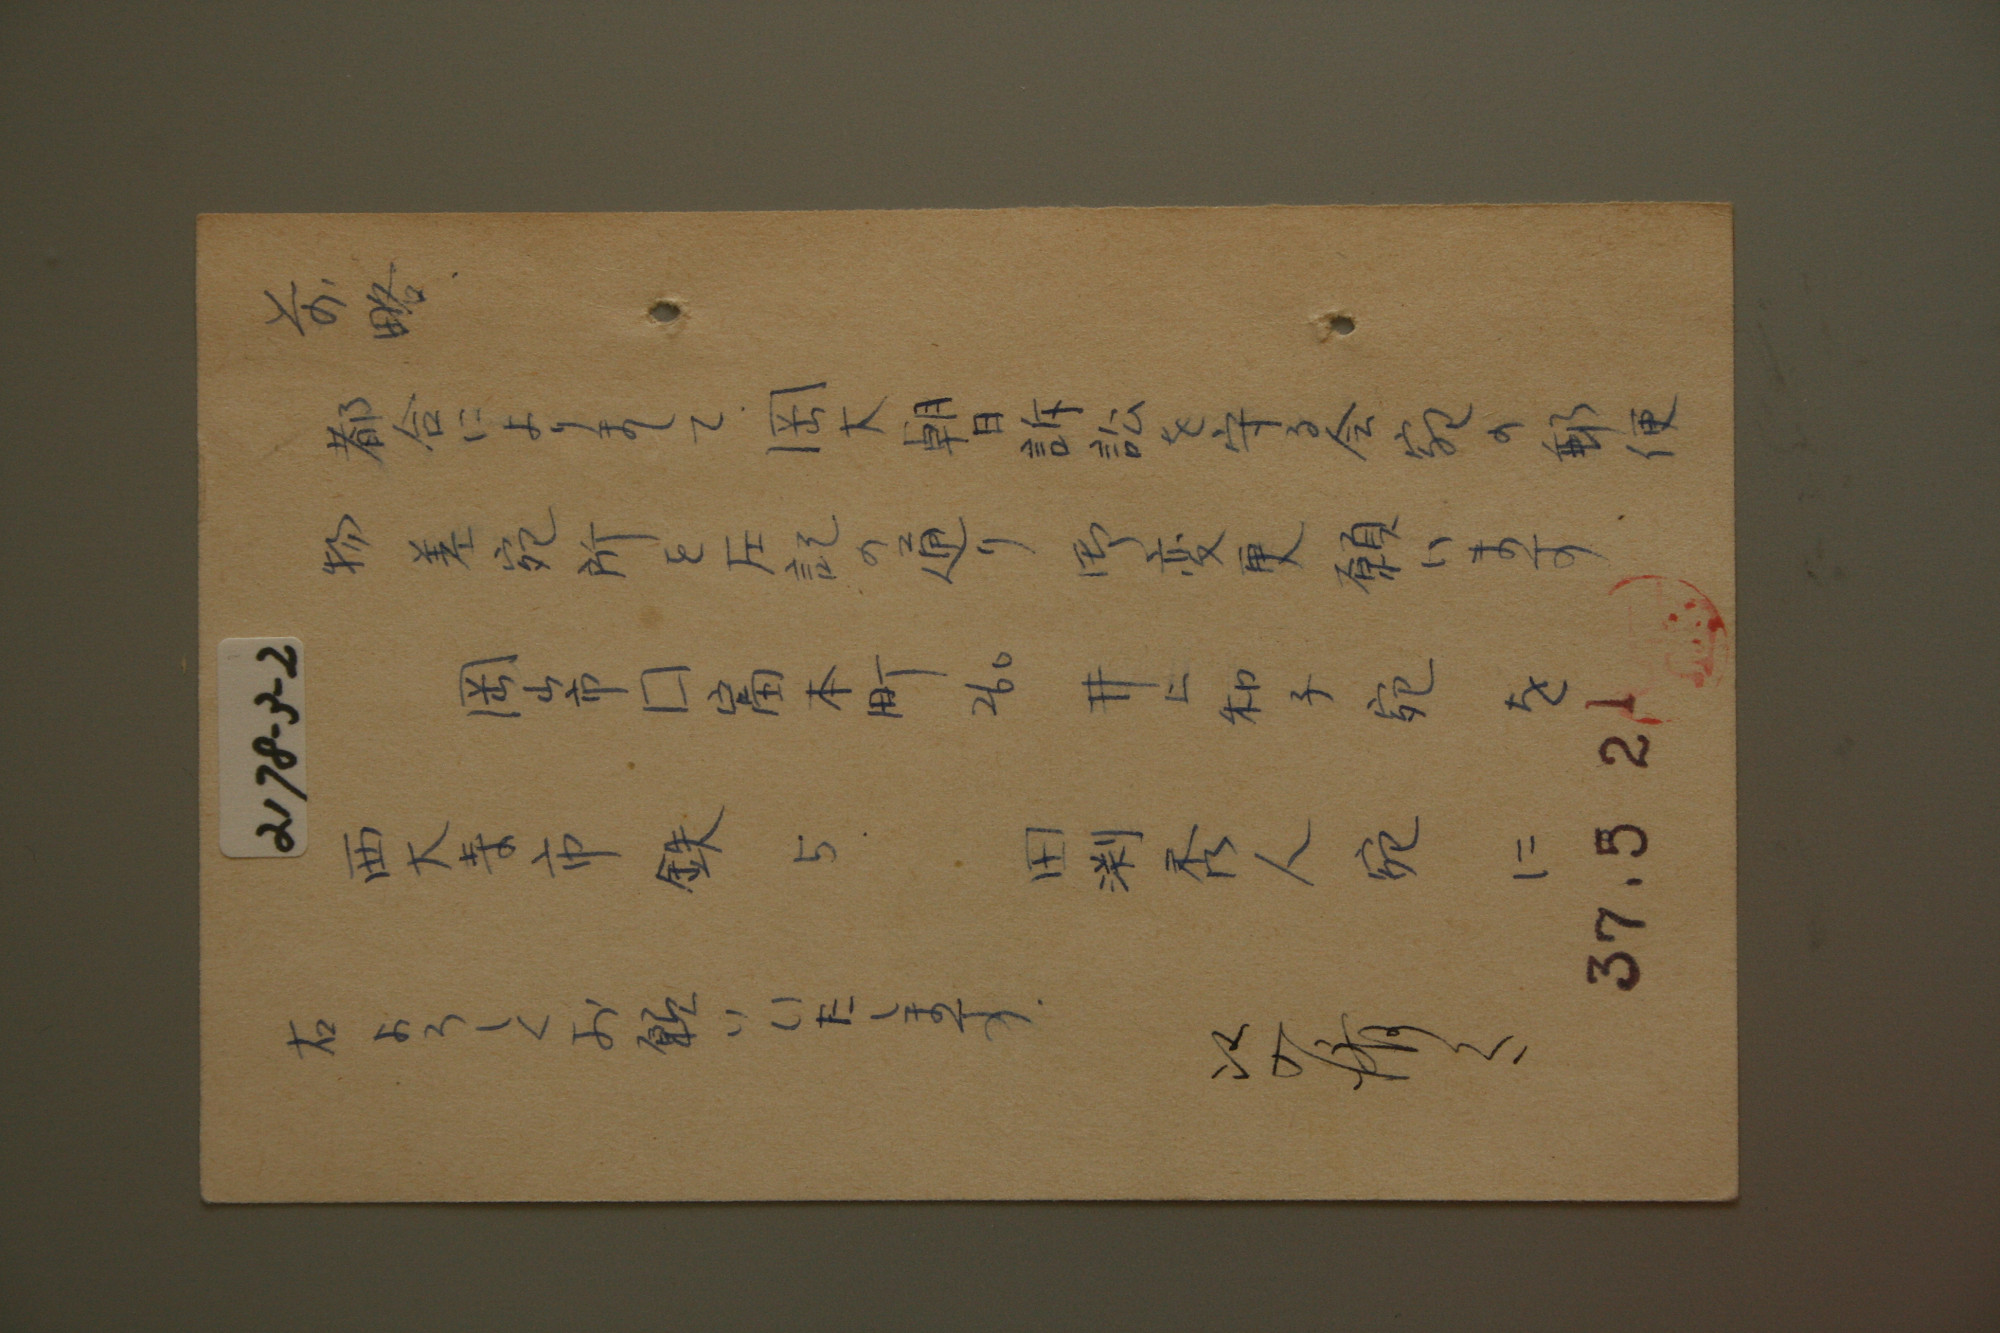 前略.
都合によりまして.岡大朝日訴訟を守る会宛の郵便
物 差宛所を左記の通り 御変更願います
岡山市門田本町260 井上和子宛 を
西大寺市 鉄 5. 田渕秀人宛 に
右よろしくお願いいたします.
37.5 21
2178-3-2